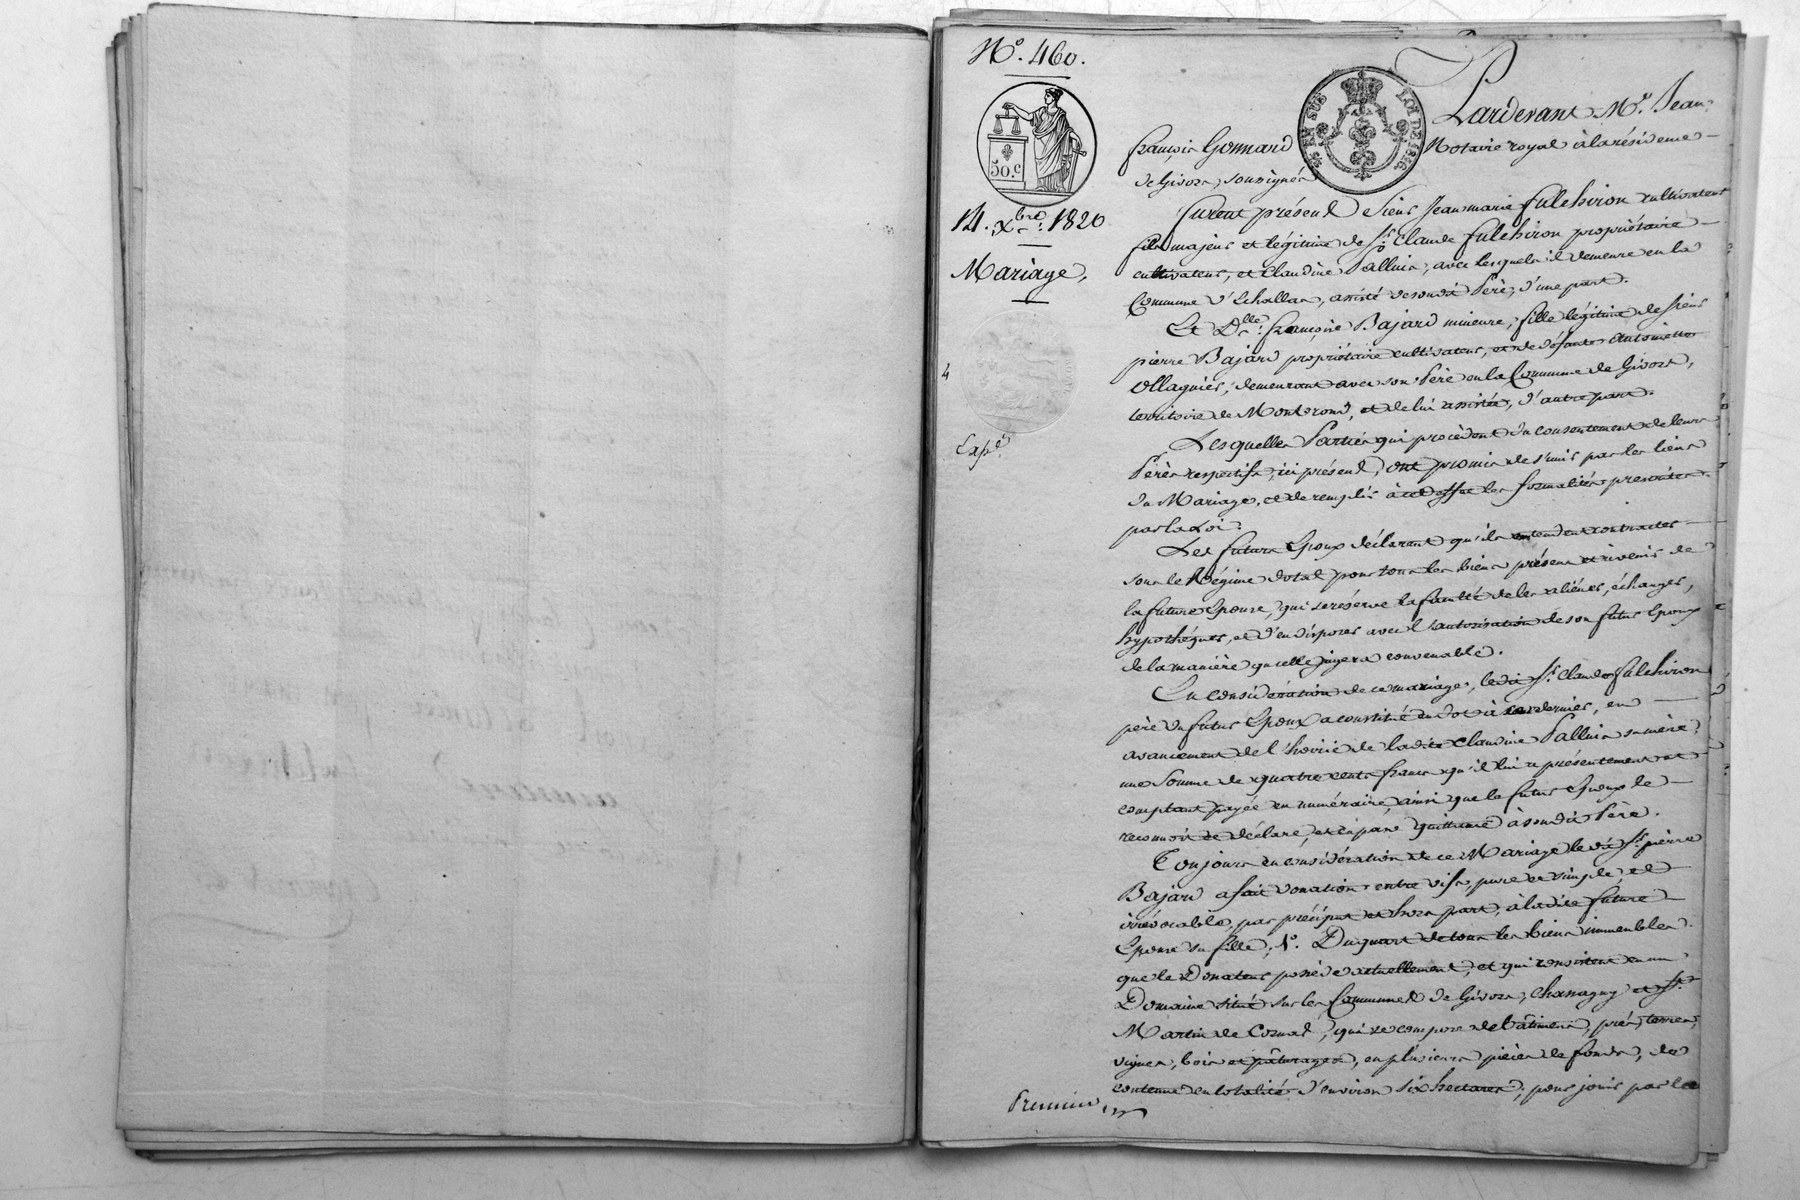 N.° 460.
50.c
14. Xbre. 1820
Mariage.
4
Expé.
EN SUS
LOI DE 1816.
Pardevant Me. Jean
françois Gonnard Notaire royal à la résidence
de Givors, soussigné
furent présens Sieur Jean marie fulchiron cultivateur
fils majeur et légitime de Sr. Claude fulchiron propriétaire
cultivateur, et Claudine Palluis, avec lesquels il demeure en la
Commune d'Echallas, assisté de son dit Père, d'une part.
Et Dlle. françoise Bajard mineure, fille légitime de sieur
pierre Bajard propriétaire cultivateur, et de défunte Antoinette
Ollagnier, demeurant avec son Père en la Commune de Givors,
territoire de Montrond, et de lui assistée, d'autre part.
Lesquelles Parties qui procèdent du consentement de leurs
Pères respectifs, ici présens, ont promis de s'unir par les liens
du Mariage, et de remplir à cet effet les formalités prescrites
par la Loi.
Les futurs Epoux déclarent qu'ils entendent contracter
sous le Régime dotal pour tous les biens présens et à venir de
la future Epouse, qui se réserve la faculté de les aliéner, échanger,
hypothéquer, et d'en disposer avec l'autorisation de son futur Epoux
de la manière qu'elle jugera convenable.
En considération de ce mariage, le dit Sr. Claude fulchiron
père du futur Epoux a constitué en dot à ce dernier, en
avancement de l'hoirie de ladite Claudine Palluis sa mère,
une somme de quatre cents francs qu'il lui a présentement et
comptant payée en numéraire, ainsi que le futur Epoux le
reconnoit et déclare, et en passe quittance à son dit Père.
Toujours en considération de ce Mariage le dit Sr. pierre
Bajard a fait donation entre vifs, pure et simple, et
irrévocable, par préciput et hors part, à ladite future
Epouse sa fille, 1.° Du quart de tous les biens immeubles
que le Donateur possède actuellement, et qui consistent en un
Domaine situé sur les Communes de Givors, Chassagny et St.
Martin de Cornas, qui se compose de bâtimens, prés, terres,
vignes, bois et pâturages, en plusieurs pièces de fonds, de
contenue en totalité d'environ six hectares, pour jouir par la
Premier